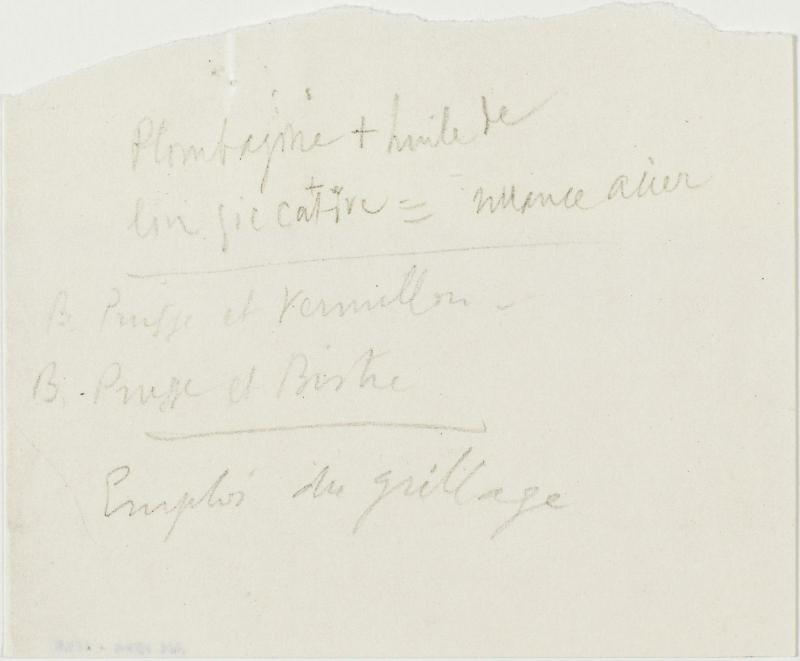 Plombagine + huile de
lin siccative = nuance acier
B. Prusse et Vermillon -
B. Prusse et Bistre
Emploi du grillage